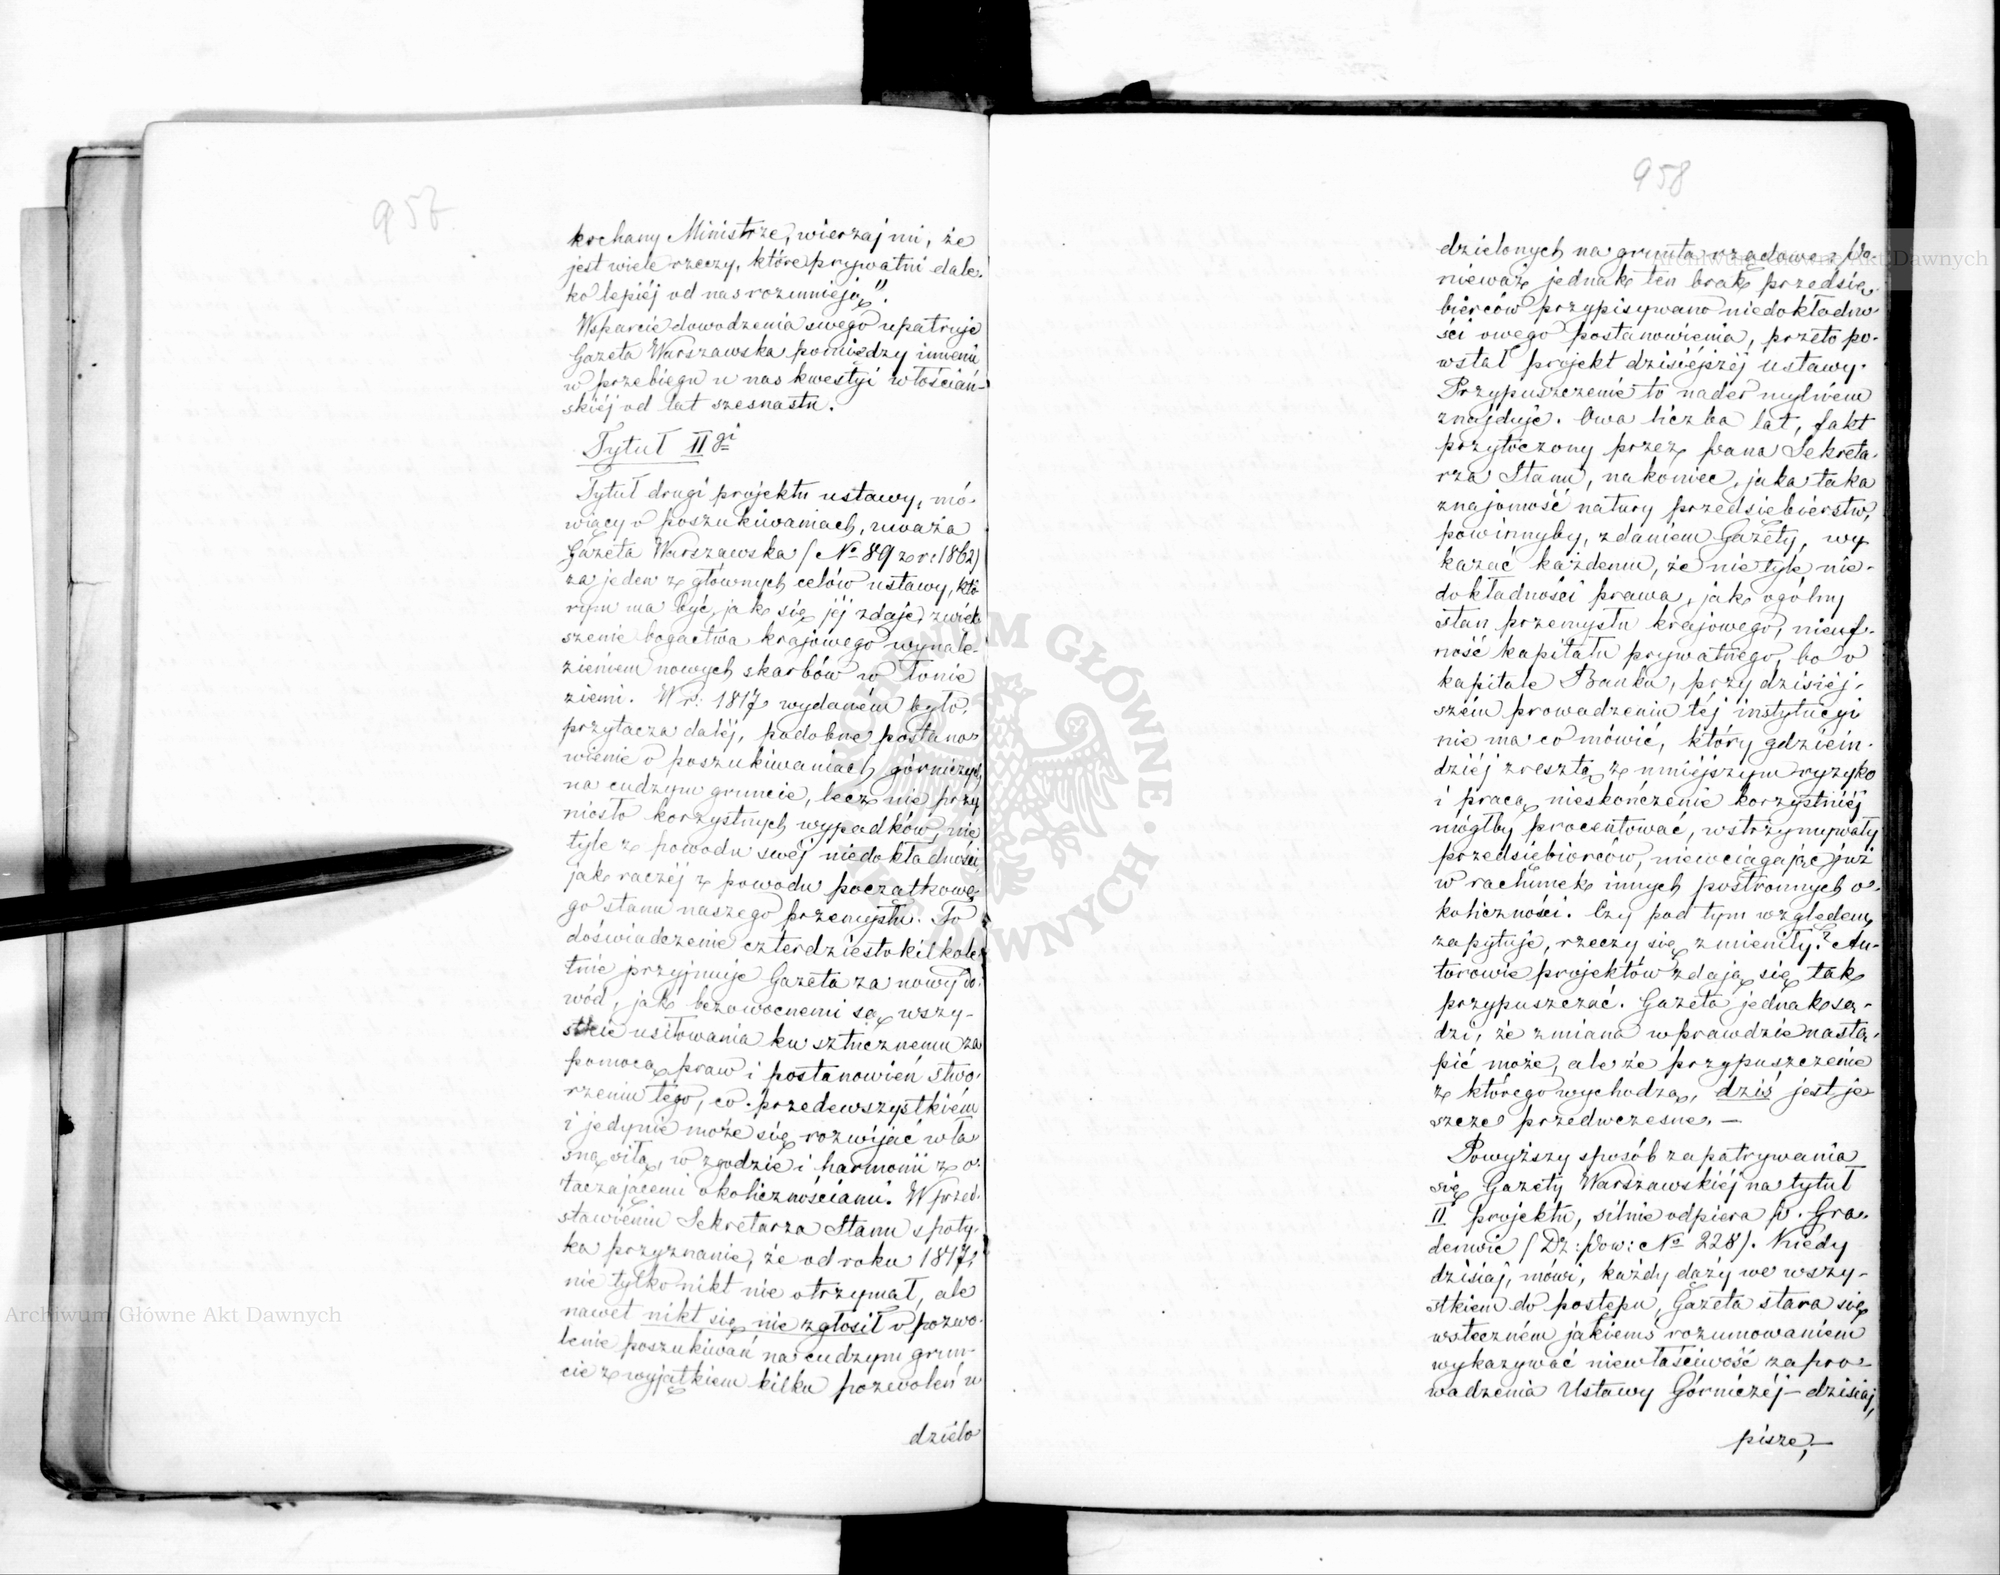 957.
kochany Ministrze, wierzaj mi, że
jest wiele rzeczy, które prywatni dale-
ko lepiéj od nas rozumnieją".
Wsparcie dowodzenia swego upatruje
Gazeta Warszawska pomiędzy innemi
w przebiegu u nas kwestyi włościań-
skiéj od lat szesnastu.
Tytuł II gi
Tytuł drugi projektu ustawy, mó-
wiący o poszukiwaniach, uważa
Gazeta Warszawska (No 89 z r: 1862)
za jeden z głównych celów ustawy, któ
rym ma być, jak się jéj zdaje, zwięk
szenie bogactwa krajowego wynale-
zieniem nowych skarbów w łonie
ziemi. W r: 1817 wydaném było,
przytacza daléj, podobne postano-
wienie o poszukiwaniach górniczych
na cudzym gruncie, lecz nie przy
niosło korzystnych wypadków, nie
tyle z powodu swéj niedokładności,
jak raczéj z powodu początkowe-
go stanu naszego przemysłu. To
doświadczenie czterdziestokilkole-
tnie przyjmuje Gazeta za nowy do-
wód, jak bezowocnemi są wszy-
stkie usiłowania ku sztucznemu za
pomocą praw i postanowień stwo-
rzeniu tego, co przedewszystkiém
i jedynie może się rozwijać wła
sną siłą, w zgodzie i harmonii z o-
taczającemi okolicznościami. W przed-
stawieniu Sekretarza Stanu spoty-
ka przyznanie, że od roku 1817,
nie tylko nikt nie otrzymał, ale
nawet nikt się nie zgłosił o pozwo-
lenie poszukiwań na cudzym grun-
cie z wyjątkiem kilku pozwoleń u
dzielo
958
dzielonych na grunta rządowe. Po-
nieważ jednak ten brak przedsię-
bierców przypisywano niedokładno-
ści owego postanowienia, przeto po-
wstał projekt dzisiéjszéj ustawy.
Przypuszczenie to nader mylném
znajduje. Owa liczba lat, fakt
przytoczony przez Pana Sekreta-
rza Stanu, nakoniec, jaka taka
znajomość natury przedsiębierstw,
powinnyby, zdaniem Gazety, wy
kazać każdemu, że nie tyle nie-
dokładności prawa, jak ogólny
stan przemysłu krajowego, nieuf-
ność kapitału prywatnego, bo o
kapitale Banku, przy dzisiéj-
szém prowadzeniu téj instytucyi
nie ma co mówić, który gdziein-
dziéj zresztą z mniéjszym ryzyko
i pracą nieskończenie korzystniéj
mógłby procentować, wstrzymywały
przedsiębiorców, niewciągając już
w rachunek innych postronnych o-
koliczności. Czy pod tym względem,
zapytuje, rzeczy się zmieniły? Au-
torowie projektów zdają się tak
przypuszczać. Gazeta jednak są-
dzi, że zmiana wprawdzie nastą-
pić może, ale że przypuszczenie
z którego wychodzą, dziś jest je
szcze przedwczesne. —
Powyższy sposób zapatrywania
się Gazety Warszawskiéj na tytuł
II projektu, silnie odpiera p. Gra-
demvic (Dz: Pow: No 228). Kiedy
dzisiaj, mówi, każdy dąży we wszy-
stkiem do postępu, Gazeta stara się
wsteczném jakiems rozumowaniem
wykazywać niewłaściwość zapro-
wadzenia Ustawy Górniczéj – dzisiaj,
pisze, —
ARCHIWUM GŁÓWNE AKT DAWNYCH
Archiwum Główne Akt Dawnych
Archiwum Główne Akt Dawnych